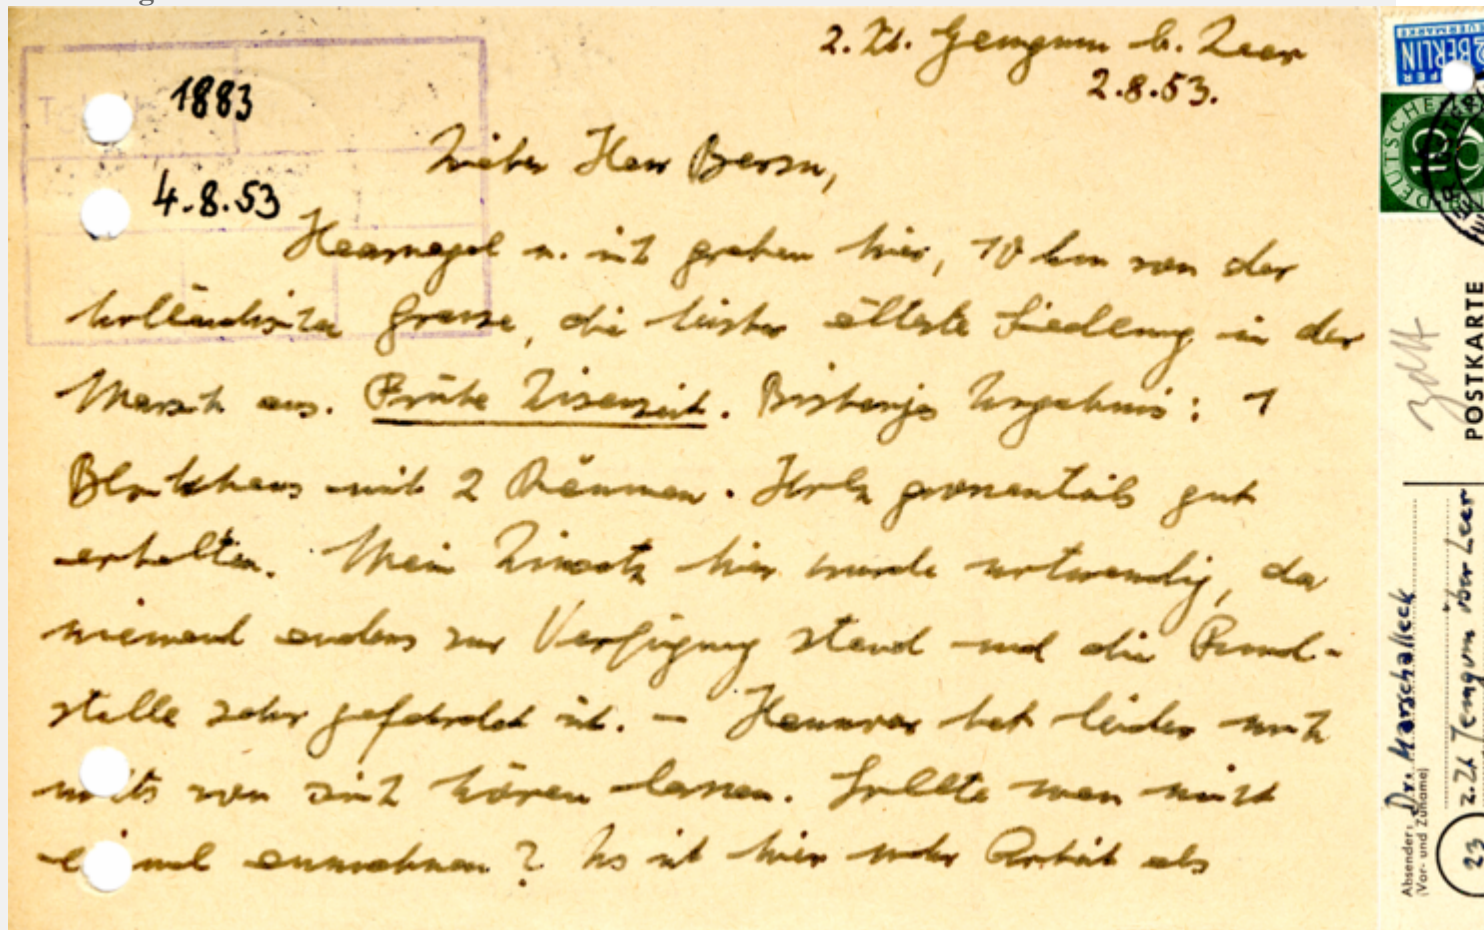 z. Zt. Jemgum b. Leer
2.8.53.
1883
4.8.53
Lieber Herr Bersu,
Haarnagel u. ich graben hier, 10 km von der
holländischen Grenze, die bisher älteste Siedlung in der
Marsch aus. Frühe Eisenzeit. Bisheriges Ergebnis: 1
Blockhaus mit 2 Räumen. Holz grossenteils gut
erhalten. Mein Einsatz hier wurde notwendig, da
niemand anders zur Verfügung stand und die Fund-
stelle sehr gefährdet ist. – Hannover hat leider noch
nichts von sich hören lassen. Sollte man nicht
einmal anmahnen? Es ist hier mehr Arbeit als
BERLIN
STEUERMARKE
DEUTSCHE
10
POSTKARTE
Absender: Dr. Marschalleck
(Vor- und Zuname)
z.Zt Jemgum über Leer
23